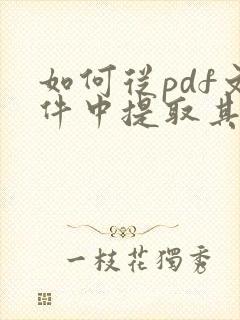 如何从pdf文
件中提取其
一枝花獨秀